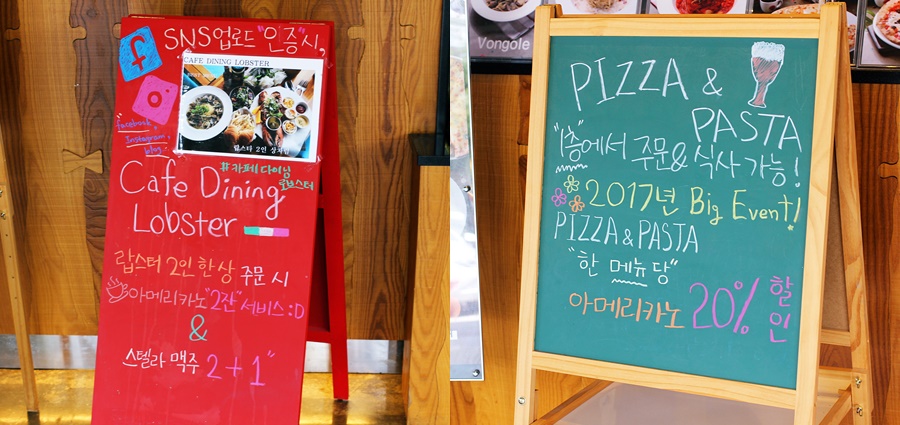 SNS업로드 "인증"시,
facebook,
Instagram,
blog.
CAFE DINING LOBSTER
랍스터 2인 상차림
#카페다이닝
로브스터
Cafe Dining
Lobster
랍스터 2인 한상 주문 시
아메리카노 "2잔" 서비스 :D
&
스텔라 맥주 2+1"
Vongole
PIZZA &
PASTA
"1층"에서 주문 & 식사 가능!
2017년 Big Event!
PIZZA & PASTA
"한 메뉴 당"
아메리카노 20% 할인